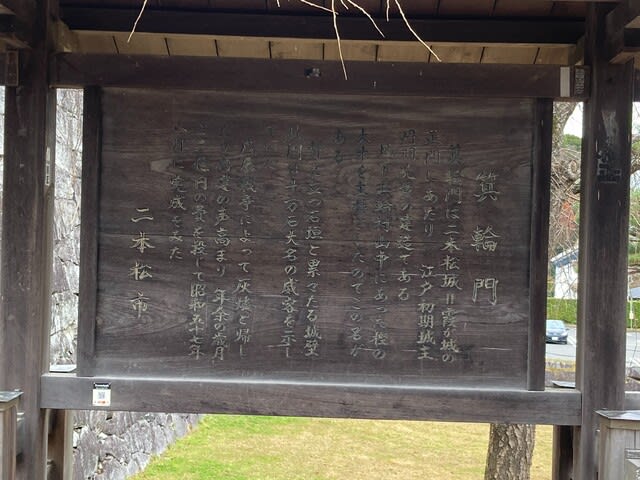 箕輪門
箕輪門は二本松城=霞が城の
正門にあたり 江戸初期城主
丹羽光重の建造である
城下箕輪村山中にあった樫の
大木を主材としたのでこの名が
ある
立つ石垣と累々たる城壁
城門は十万石大名の威容を示し
戊辰戦争によって灰燼に帰し
の声高まり 年余の歳月
の費を投じて昭和五十七年
に完成をみた
二本松市